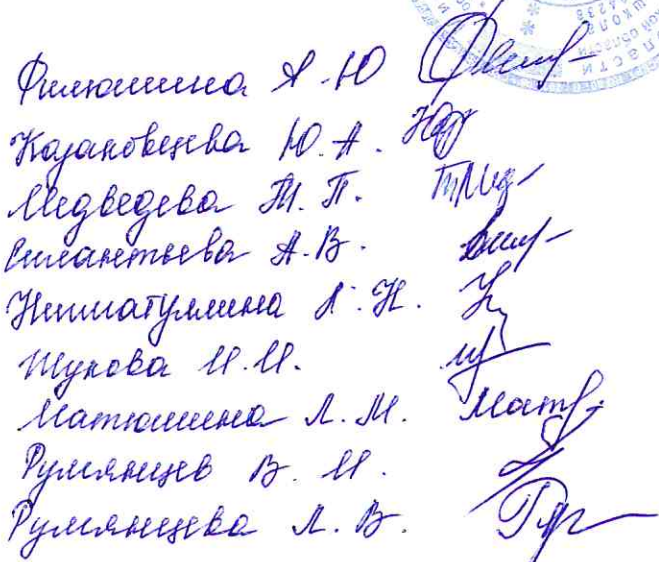 ШКОЛА
ОБЛАСТИ
Филюшина А.Ю
Казановцева Ю.А.
Медведева Т.П.
Силантьева А.В.
Нигматуллина Л.Н.
Шукова И.И.
Матюшина Л.М.
Румянцев В.И.
Румянцева Л.В.